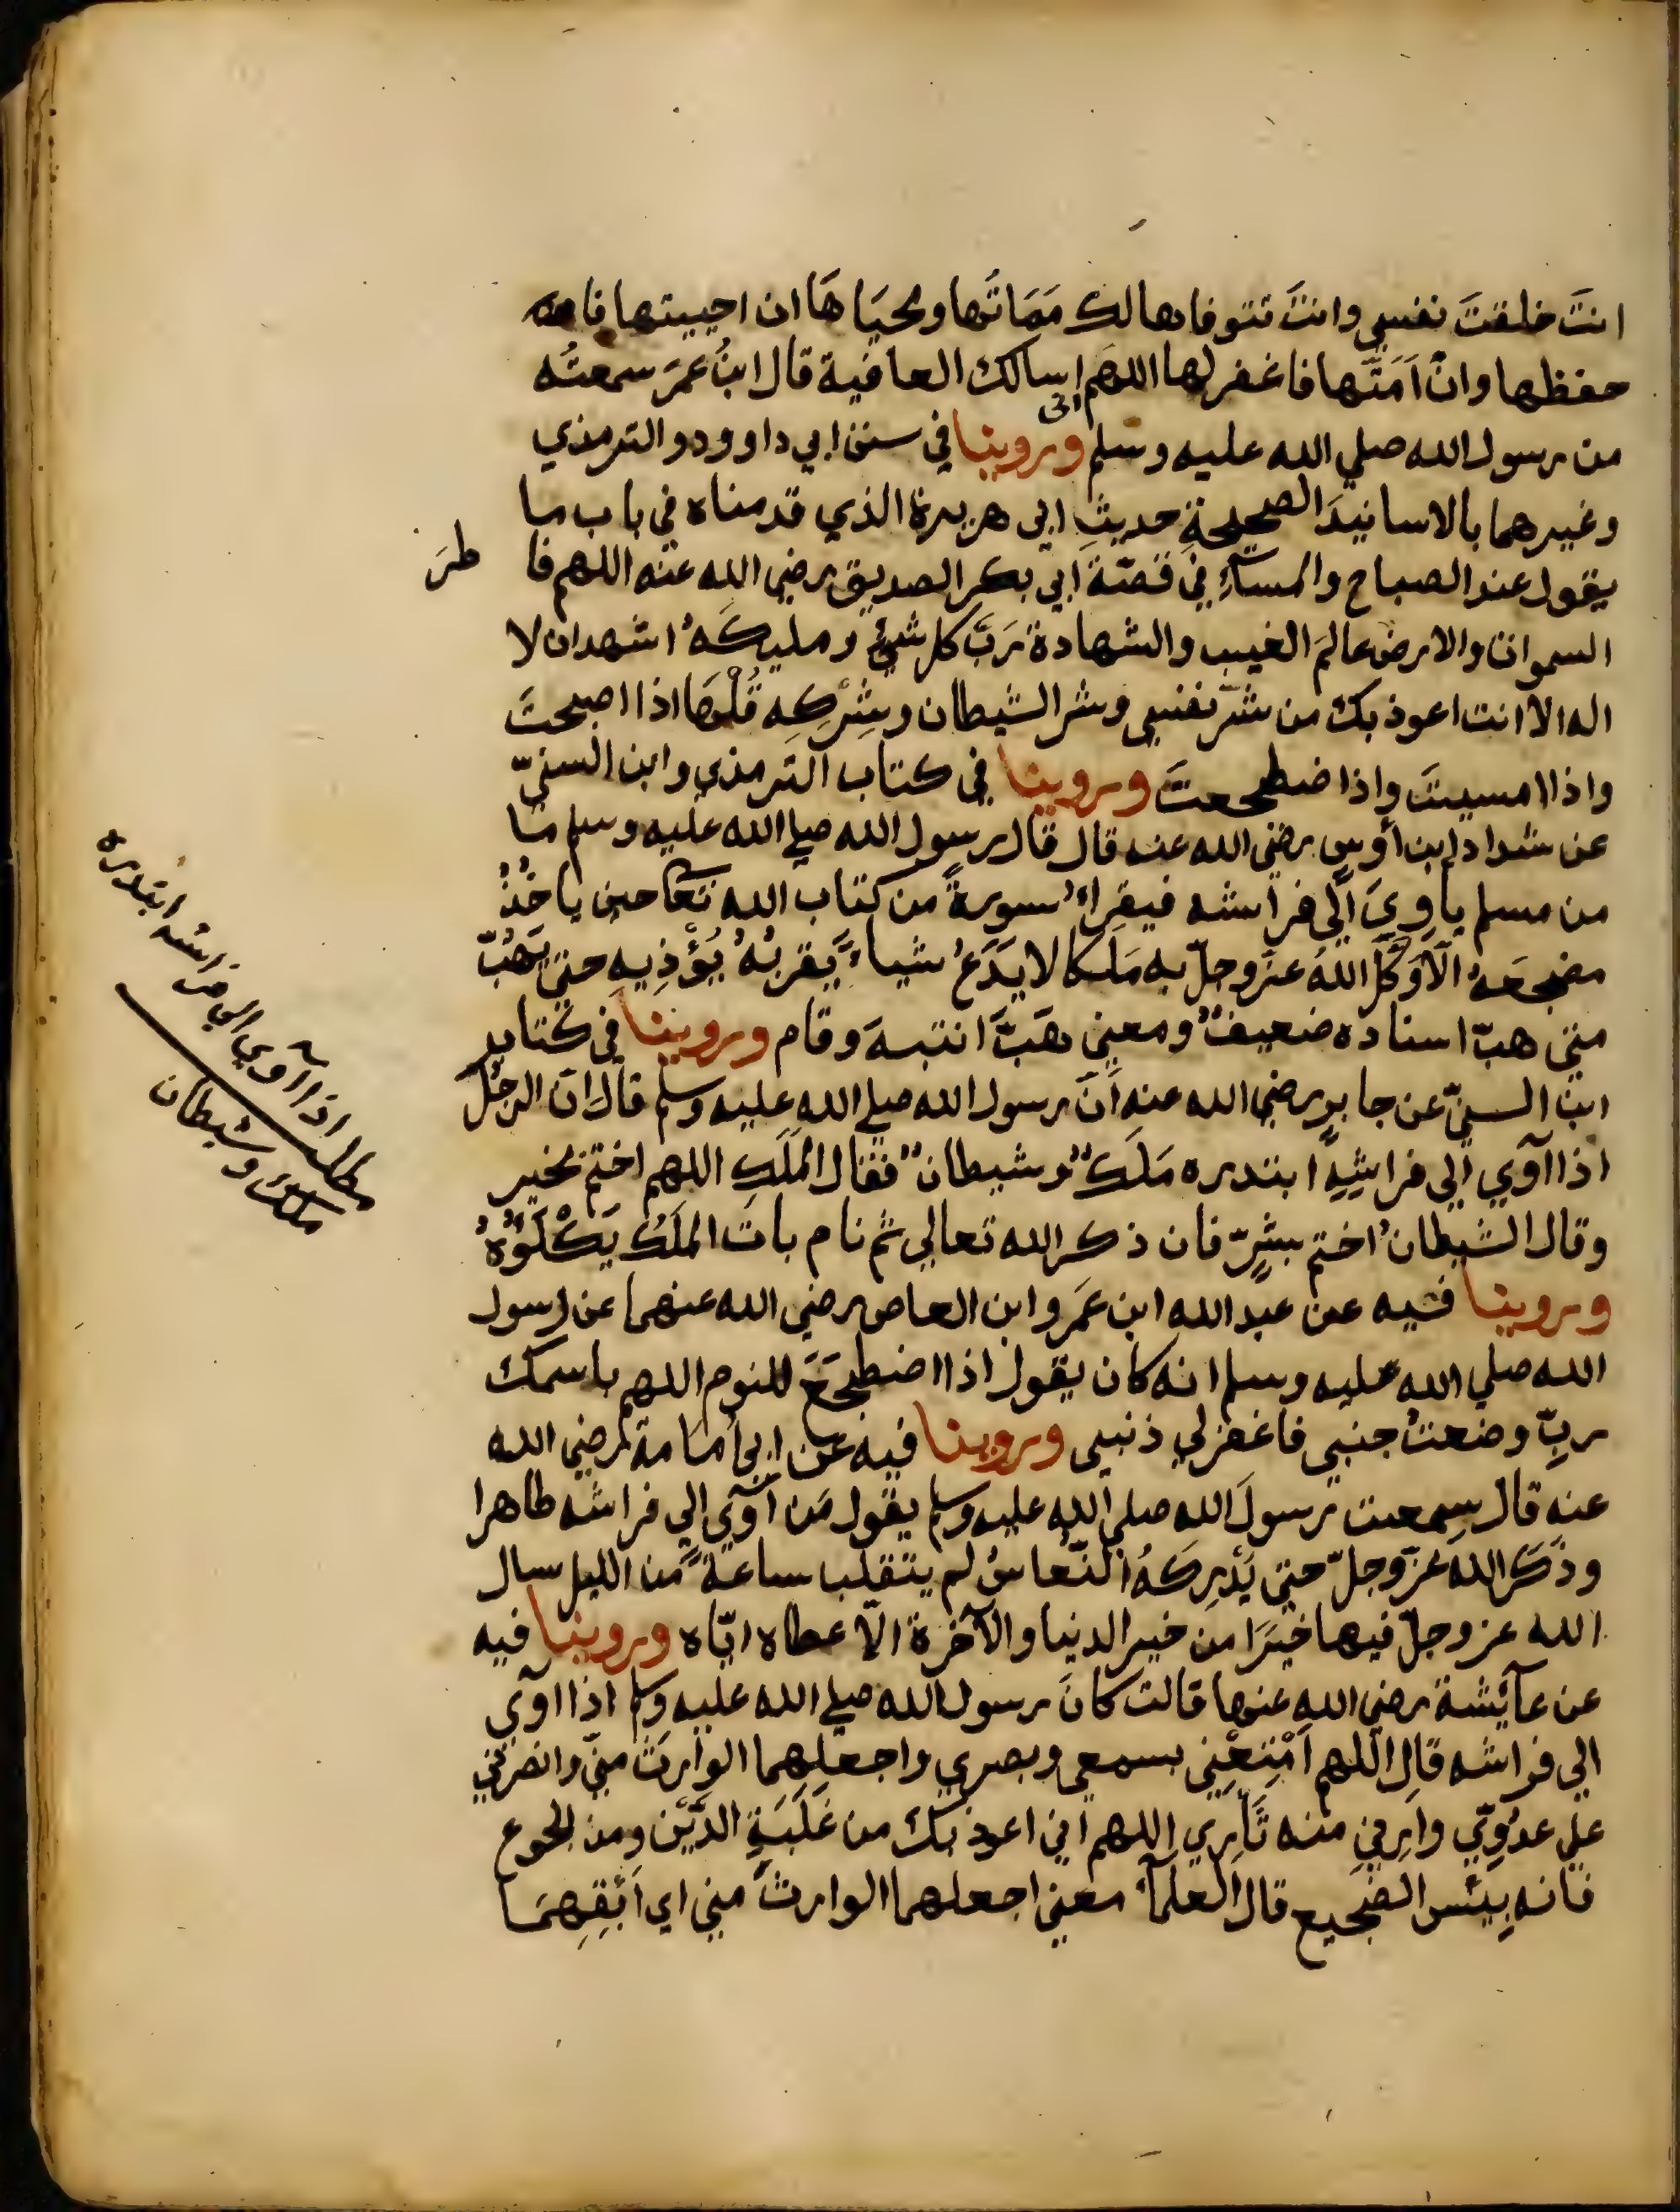 انتَ خلقتَ نفسي وانتَ تتوفاها لك مَمَاتُها ومحيَاهَا ان احييتها فا
حفظها وانْ اَمَتَّها فاغفر لها اللهم اسالك العافية قال ابنُ عمرَ سمعتُه
انى
من رسول الله صلي الله عليه وسلم وروينا في سنن ابي داوود والترمذي
وغيرهما بالاسانيدَ الصحيحةِ حديثِ ابي هريرة الذي قدمناه في باب ما
يقول عند الصباح والمسآءِ في قصّة ابي بكر الصديق رضي الله عنه اللهم فا طرَ
السموات والارض عالمَ الغيب والشهادة رَبَّ كل شيئٍ ومليكَهُ اشهد ان لا
اله الا انت اعوذ بك من شرّ نفسي وشر الشيطان وشِرْكِهِ قُلْهَا اذا اصبحتَ
واذا امسيتَ واذا اضطجعتَ وروينا في كتاب الترمذي وابن السنيّ
عن شداد ابن اَوسٍ رضي الله عنه قال قال رسول الله صلي الله عليه وسلم مَا
من مسلم ياوِيَ اِلَي فراشه فيقراءُ سورةً من كتاب الله تَعَا حين ياخُذُ
مضجعَهُ الّا وَكَّلَ اللهُ عزّ وجلّ به مَلَكا لا يَدَعُ شياءً يَّقربُهُ يُؤْذِيهِ حتى يَهُبَّ
متى هبّ اسناده ضعيفٌ ومعني هَبَّ انتبهَ وقام وروينا في كتاب
ابن السنيّ عن جابرٍ رضي الله عنه اَنّ رسول الله صلي الله عليه وسلم قال انّ الرجُلَ
اذا آوي اِلي فراشِهِ ابتدره مَلَكٌ وشيطانٌ فقال المَلَكِ اللهم اختم بخير
وقال الشيطانُ اختم بشرٍّ فان ذكر الله تعالي ثم نام باتَ المَلَكُ يَكْلَوُهُ
وروينا فيه عن عبد الله ابن عَمَرو ابن العاص رضي الله عنهما عن رسول
الله صلي الله عليه وسلم انه كان يقول اذا اضطجَعَ للنوم اللهم باسمك
ربِّ وضعتُ جنبي فاغفر لي ذنبي وروينا فيه عن ابي اُمامة رضي الله
عنه قال سِمعت رسولَ الله صلي الله عليه وسلم يقول مَن آوَي اِلي فراشه طاهرا
وذَكَرَ اللهَ عَزّ وجلّ حتى يُدْرِكَهُ النّعاسُ لم يتقلب ساعةً مّن الليل سال
الله عز وجلّ فيها خيَرًا من خير الدنيا والآخرة الّا عطاه ايّاه وروينا فيه
عن عآئِشة رضي الله عنها قالت كانَ رسول الله صلي الله عليه وسلم اذا اوَي
الي فراشه قال اللهم اَمْتِعْنِي بسمعي وبصري واجعلهما الوارثَ منّي وانصرني
علي عدُوِّي وارِني منه ثَأرِي اللهم اني اعوذ بك من غَلَبَةِ الدَّيْن ومن الجوع
فانه بِئْس الضجيع قال العلمآءُ معني اجعلهما الوارثَ مني اي اَبْقِهِمَا
مطلب اذا آوي الي فراشه ابتدره
ملك وشيطان